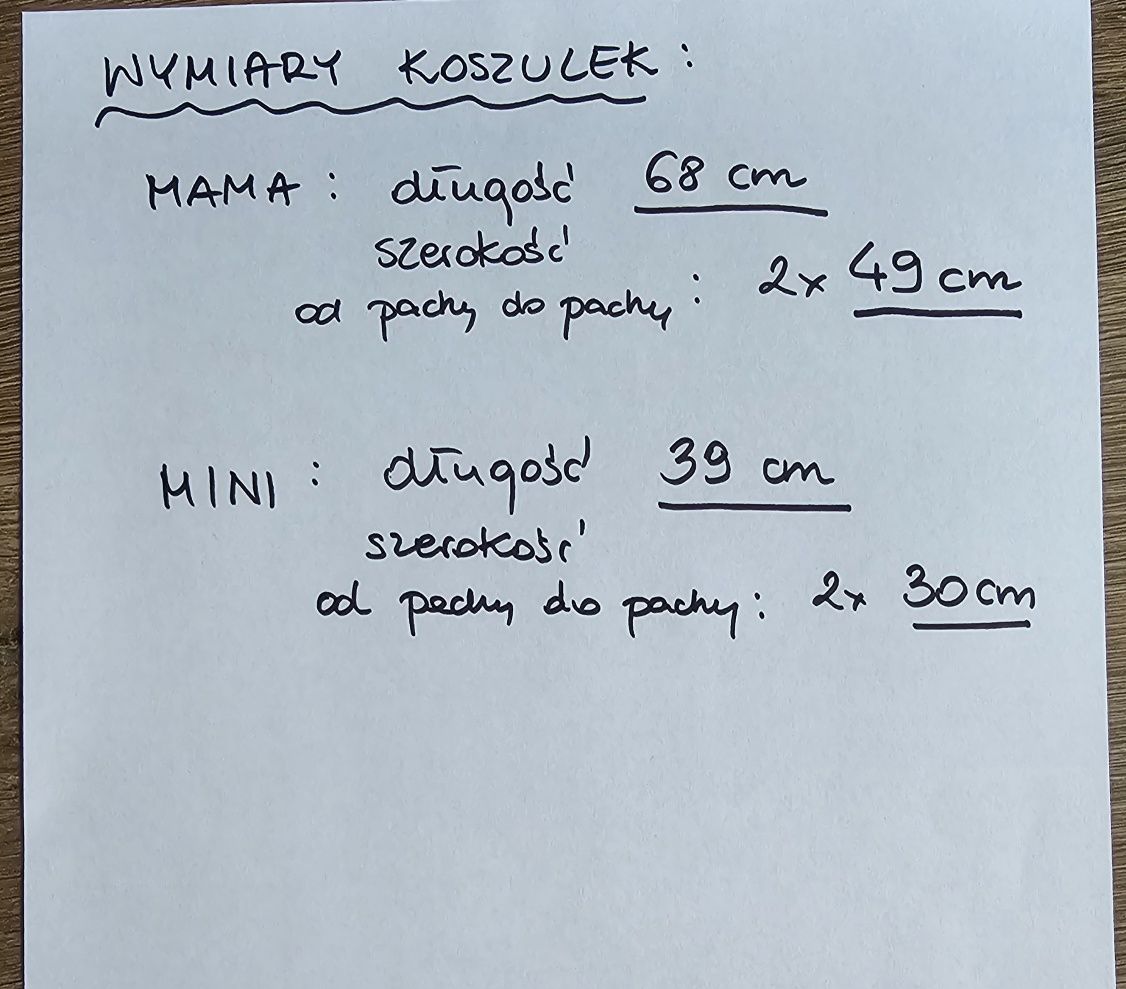 WYMIARY KOSZULEK:
MAMA: długość 68 cm
szerokość
od pachy do pachy: 2x 49 cm
MINI: długość 39 cm
szerokość
od pachy do pachy: 2x 30 cm